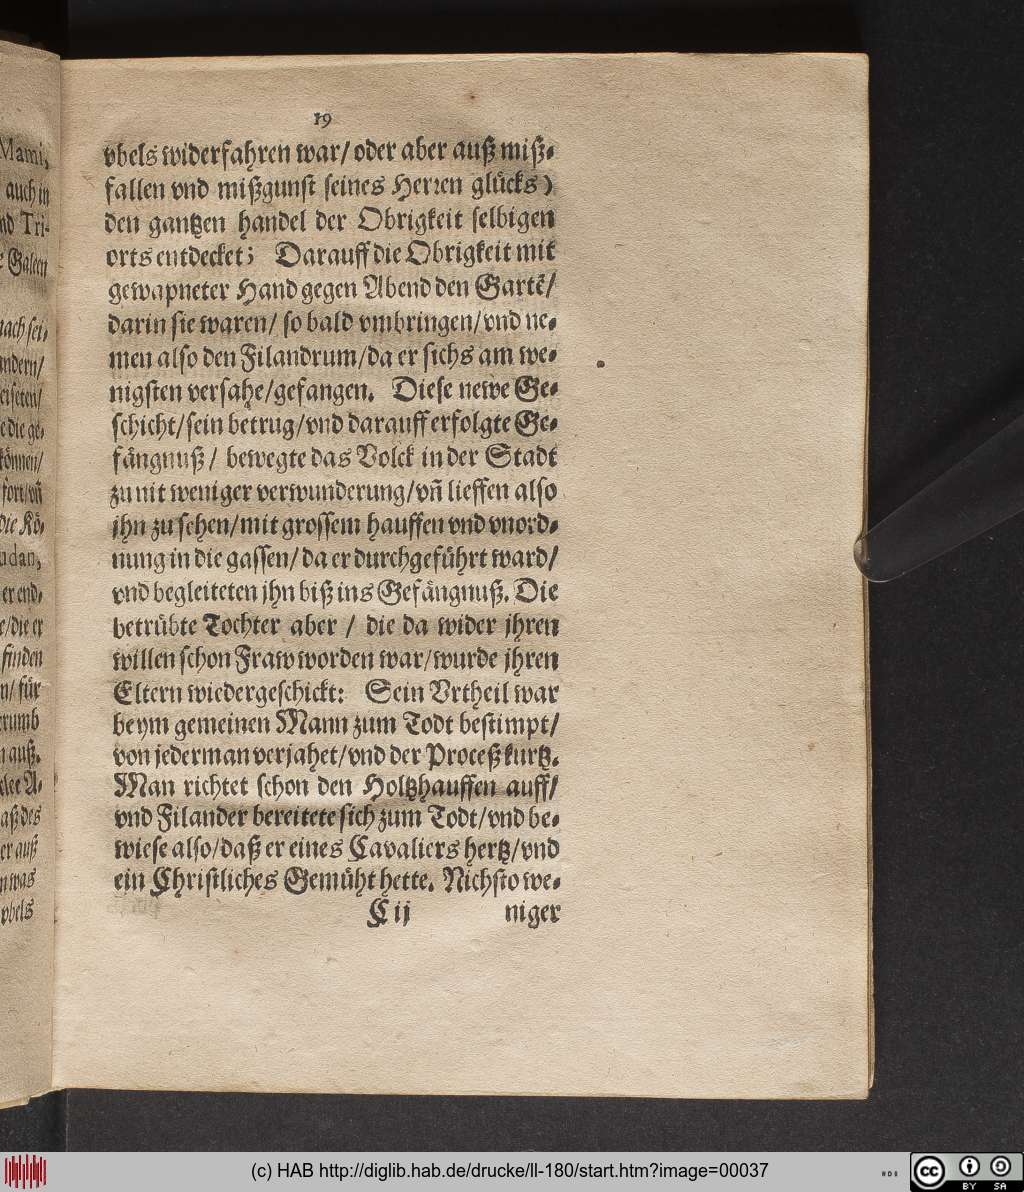 Mami,
auch in
nd Tri-
Galeen
nach sei-
andern/
die ge-
können/
fort/vñ
die Kö-
udan,
er end-
e/die er
finden
n/ für
erumb
auß.
A-
aß des
er auß
n was
vbels
19
vbels widerfahren war/ oder aber auß miß-
fallen vnd mißgunst seines Herren glücks)
den gantzen handel der Obrigkeit selbigen
orts entdecket; Darauff die Obrigkeit mit
gewapneter Hand gegen Abend den Gartẽ/
darin sie waren/ so bald vmbringen/vnd ne-
men also den Filandrum/da er sichs am we-
nigsten versahe/gefangen. Diese newe Ge-
schicht/sein betrug/vnd darauff erfolgte Ge-
fängnuß/ bewegte das Volck in der Stadt
zu nit weniger verwunderung/vñ lieffen also
jhn zu sehen/mit grossem hauffen vnd vnord-
nung in die gassen/da er durchgeführt ward/
vnd begleiteten jhn biß ins Gefängnuß. Die
betrübte Tochter aber / die da wider jhren
willen schon Fraw worden war/wurde jhren
Eltern wiedergeschickt: Sein Vrtheil war
beym gemeinen Mann zum Todt bestimpt/
von jederman verjahet/vnd der Proceß kurtz.
Man richtet schon den Holtzhauffen auff/
vnd Filander bereitete sich zum Todt/vnd be-
wiese also/daß er eines Cavaliers hertz/vnd
ein Christliches Gemüht hette. Nichsto we-
C ij niger
(c) HAB http://diglib.hab.de/drucke/ll-180/start.htm?image=00037
cc BY SA